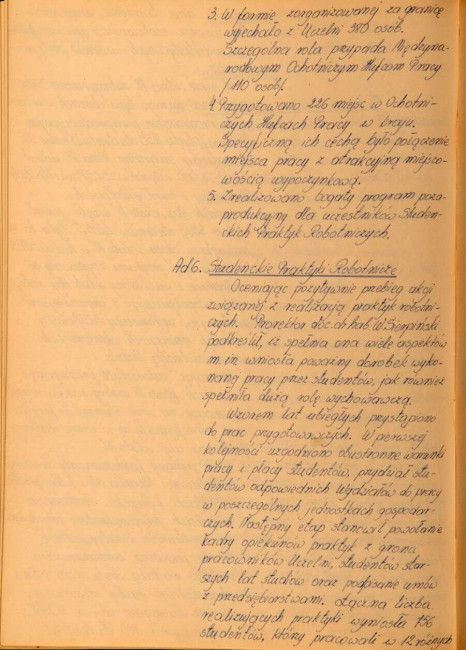 3. W formie zorganizowanej za granicę
wyjechało z Uczelni 370 osób.
Szczególna rola przypada Międzyna-
rodowym Ochotniczym Hufcom Pracy
/110 osób/.
4. Przygotowano 226 miejsc w Ochotni-
czych Hufcach Pracy w kraju.
Specyficzną ich cechą było połączenie
miejsca pracy z atrakcyjną miejsco-
wością wypoczynkową.
5. Zrealizowano bogaty program poza-
produkcyjny dla uczestników Studen-
ckich Praktyk Robotniczych.
Ad 6. Studenckie Praktyki Robotnicze
Oceniając pozytywnie przebieg akcji
związanej z realizacją praktyk robotni-
czych. Prorektor doc. dr hab. W. Sierpiński
podkreślił, iż spełnia ona wiele aspektów
m. in. wniosła poważny dorobek wyko-
nanej pracy przez studentów, jak również
spełniła dużą rolę wychowawczą.
Wzorem lat ubiegłych przystąpiono
do prac przygotowawczych. W pierwszej
kolejności uzgodniono obustronne warunki
pracy i płacy studentów, przydział stu-
dentów odpowiednich Wydziałów do pracy
w poszczególnych jednostkach gospodar-
czych. Następny etap stanowił powołanie
kadry opiekunów praktyk z grona
pracowników Uczelni, studentów star-
szych lat studiów oraz podpisanie umów
z przedsiębiorstwami. Łączna liczba
realizujących praktyki wyniosła 756
studentów, którzy pracowali w 12 różnych